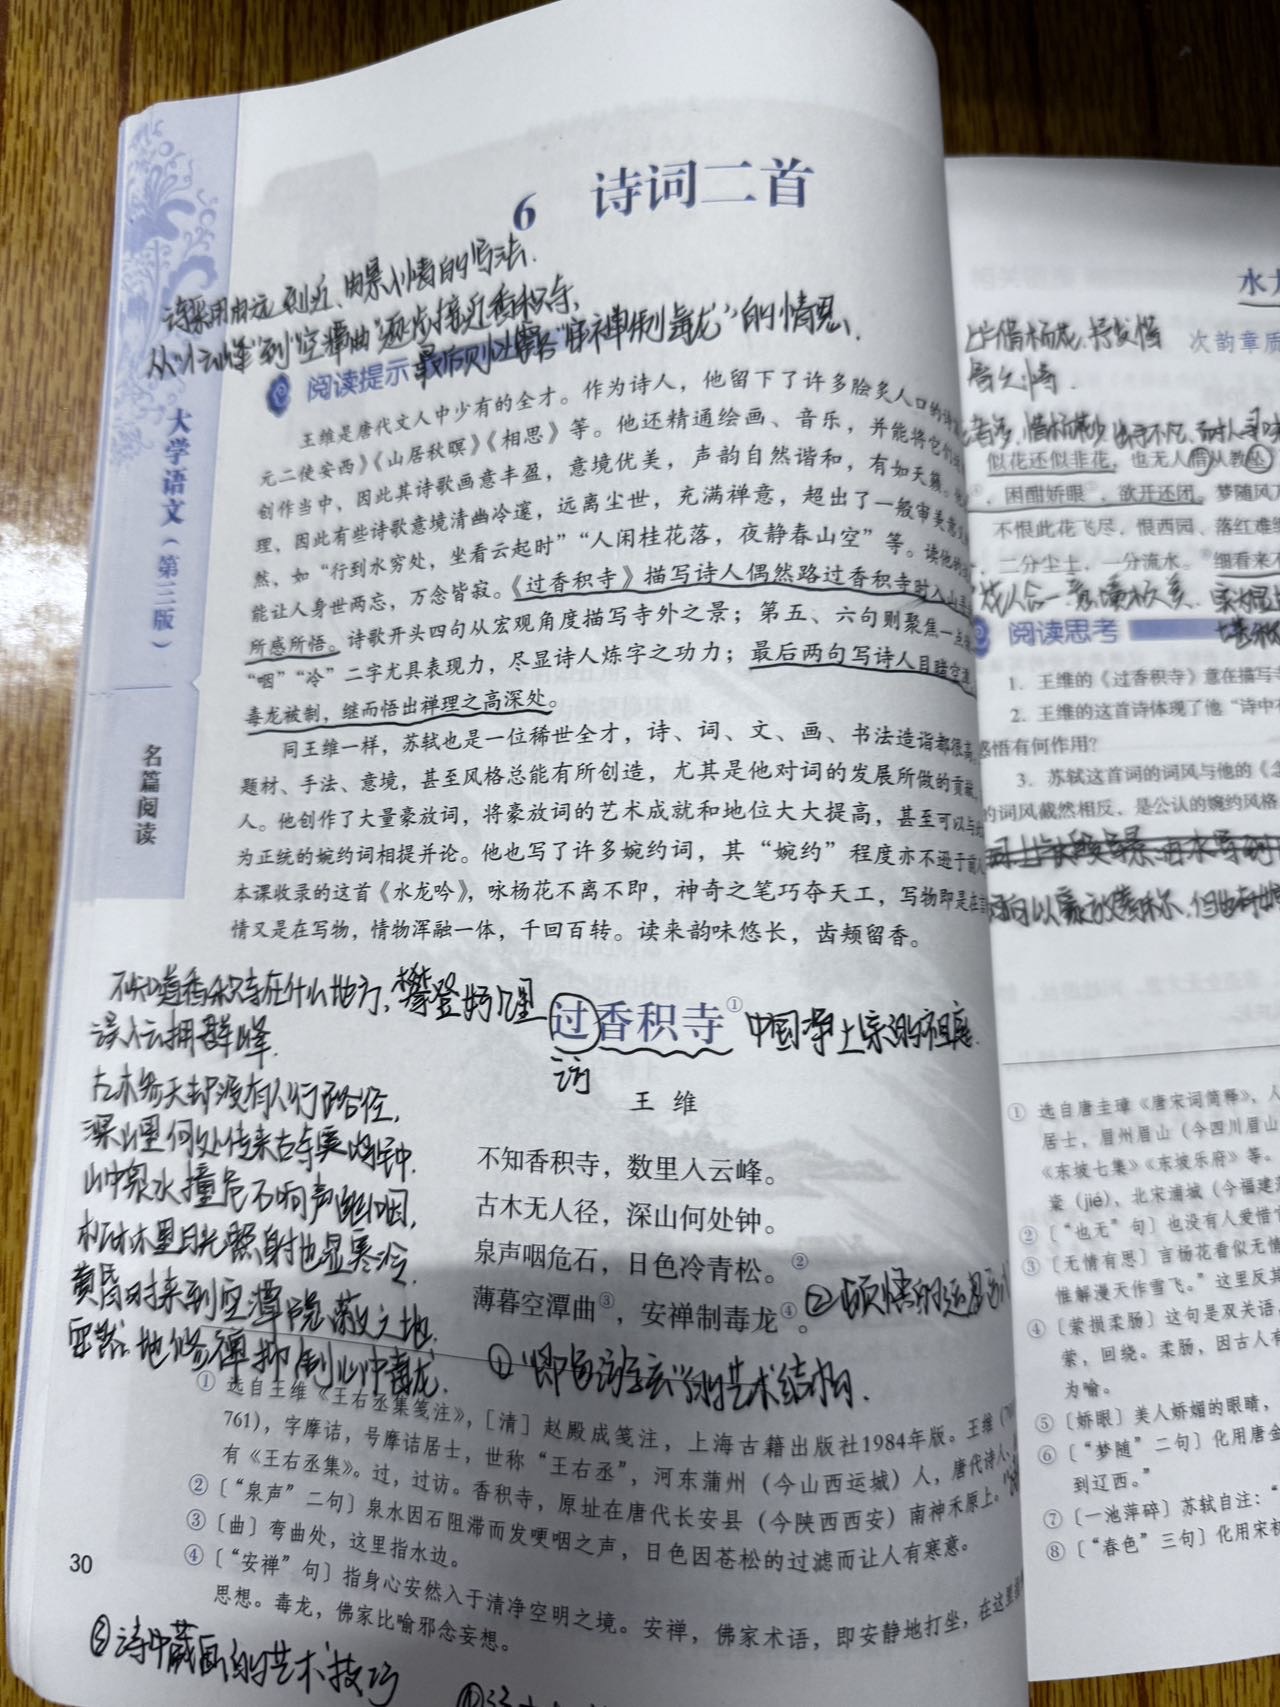 6 诗词二首
诗采用由远到近、由景入情的写法.
从"入云峰"到"空潭曲"逐步接近香积寺,
最后则吐露"安禅制毒龙"的情思、
阅读提示
王维是唐代文人中少有的全才。作为诗人，他留下了许多脍炙人口的
元二使安西》《山居秋暝》《相思》等。他还精通绘画、音乐，并能将它们
创作当中，因此其诗歌画意丰盈，意境优美，声韵自然谐和，有如天籁。
理，因此有些诗歌意境清幽冷邃，远离尘世，充满禅意，超出了一般审美意
然，如“行到水穷处，坐看云起时”“人闲桂花落，夜静春山空”等。读他的
能让人身世两忘，万念皆寂。《过香积寺》描写诗人偶然路过香积寺时入山
所感所悟。诗歌开头四句从宏观角度描写寺外之景；第五、六句则聚焦一点
“咽”“冷”二字尤具表现力，尽显诗人炼字之功力；最后两句写诗人目睹空潭
毒龙被制，继而悟出禅理之高深处。
同王维一样，苏轼也是一位稀世全才，诗、词、文、画、书法造诣都很高
题材、手法、意境，甚至风格总能有所创造，尤其是他对词的发展所做的贡献
人。他创作了大量豪放词，将豪放词的艺术成就和地位大大提高，甚至可以与
为正统的婉约词相提并论。他也写了许多婉约词，其“婉约”程度亦不逊于前人
本课收录的这首《水龙吟》，咏杨花不离不即，神奇之笔巧夺天工，写物即是在
情又是在写物，情物浑融一体，千回百转。读来韵味悠长，齿颊留香。
不知道香积寺在什么地方, 攀登好几里
误入云拥群峰.
古木参天却没有人行路径,
深山里何处传来古寺鸣钟.
山中泉水撞危石响声幽咽,
松林里日光照射也显寒冷.
黄昏时来到空潭隐蔽之地.
安然地修禅抑制心中毒龙.
过香积寺①
中国净土宗的祖庭.
访
王 维
不知香积寺，数里入云峰。
古木无人径，深山何处钟。
泉声咽危石，日色冷青松。②
薄暮空潭曲③，安禅制毒龙④。
②顿悟的
①"即事访玄"的艺术结构.
① 选自王维《王右丞集笺注》，［清］赵殿成笺注，上海古籍出版社1984年版。王维
761），字摩诘，号摩诘居士，世称“王右丞”，河东蒲州（今山西运城）人，唐代诗人，
有《王右丞集》。过，过访。香积寺，原址在唐代长安县（今陕西西安）南神禾原上。
②〔“泉声”二句〕泉水因石阻滞而发哽咽之声，日色因苍松的过滤而让人有寒意。
③〔曲〕弯曲处，这里指水边。
④〔“安禅”句〕指身心安然入于清净空明之境。安禅，佛家术语，即安静地打坐，在这里
思想。毒龙，佛家比喻邪念妄想。
③诗中藏画的艺术技巧
30
大学语文（第三版）
名篇阅读
水
次韵章质
上片惜杨花,抒发惜
似花还似非花，也无人惜从教坠
，困酣娇眼，欲开还闭。梦随风万
不恨此花飞尽，恨西园、落红难缀
，二分尘土，一分流水。细看来不
阅读思考
1. 王维的《过香积寺》意在描写寺
2. 王维的这首诗体现了他“诗中有
感悟有何作用？
3. 苏轼这首词的词风与他的《念
的词风截然相反，是公认的婉约风格
① 选自唐圭璋《唐宋词简释》，人
居士，眉州眉山（今四川眉山
《东坡七集》《东坡乐府》等。
楶（jié），北宋浦城（今福建
②〔“也无”句〕也没有人爱惜
③〔无情有思〕言杨花看似无情
惟解漫天作雪飞。”这里反其
④〔萦损柔肠〕这句是双关语，
萦，回绕。柔肠，因古人有
为喻。
⑤〔娇眼〕美人娇媚的眼睛，
⑥〔“梦随”二句〕化用唐金
到辽西。”
⑦〔一池萍碎〕苏轼自注：“
⑧〔“春色”三句〕化用宋初